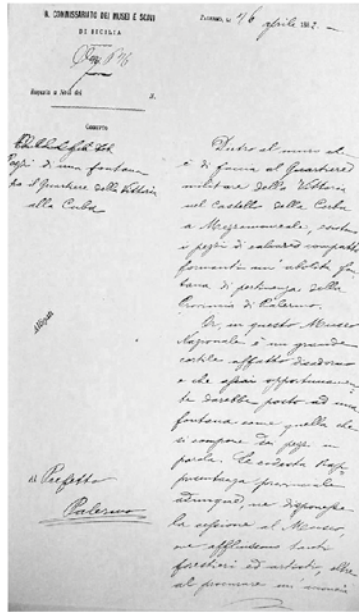 R. COMMISSARIATO DEI MUSEI E SCAVI
DI SICILIA
Palermo, li 26 aprile 18
Risposta a Nota del N.
OGGETTO
Pezzi di una fontana
tra il Quartiere della Vittoria
alla Cuba
Al Prefetto
Palermo
Dietro al muro che
è di faccia al Quartiere
militare della Vittoria
nel Castello della Cuba
a Mezzomonreale, esistono
i pezzi di calcare compatto
formanti un'abolita fon
tana di pertinenza della
Provincia di Palermo.
Or, in questo Museo
Nazionale è un grande
cortile affatto disadorno
e che assai opportunamen
te darebbe posto ad una
fontana come quella che
si compone dei pezzi in
parola. Se codesta Rap
presentanza provinciale
adunque, ne disponesse
la cessione al Museo,
ove affluiscono tanti
forestieri ed artisti, oltre
al procurare un'